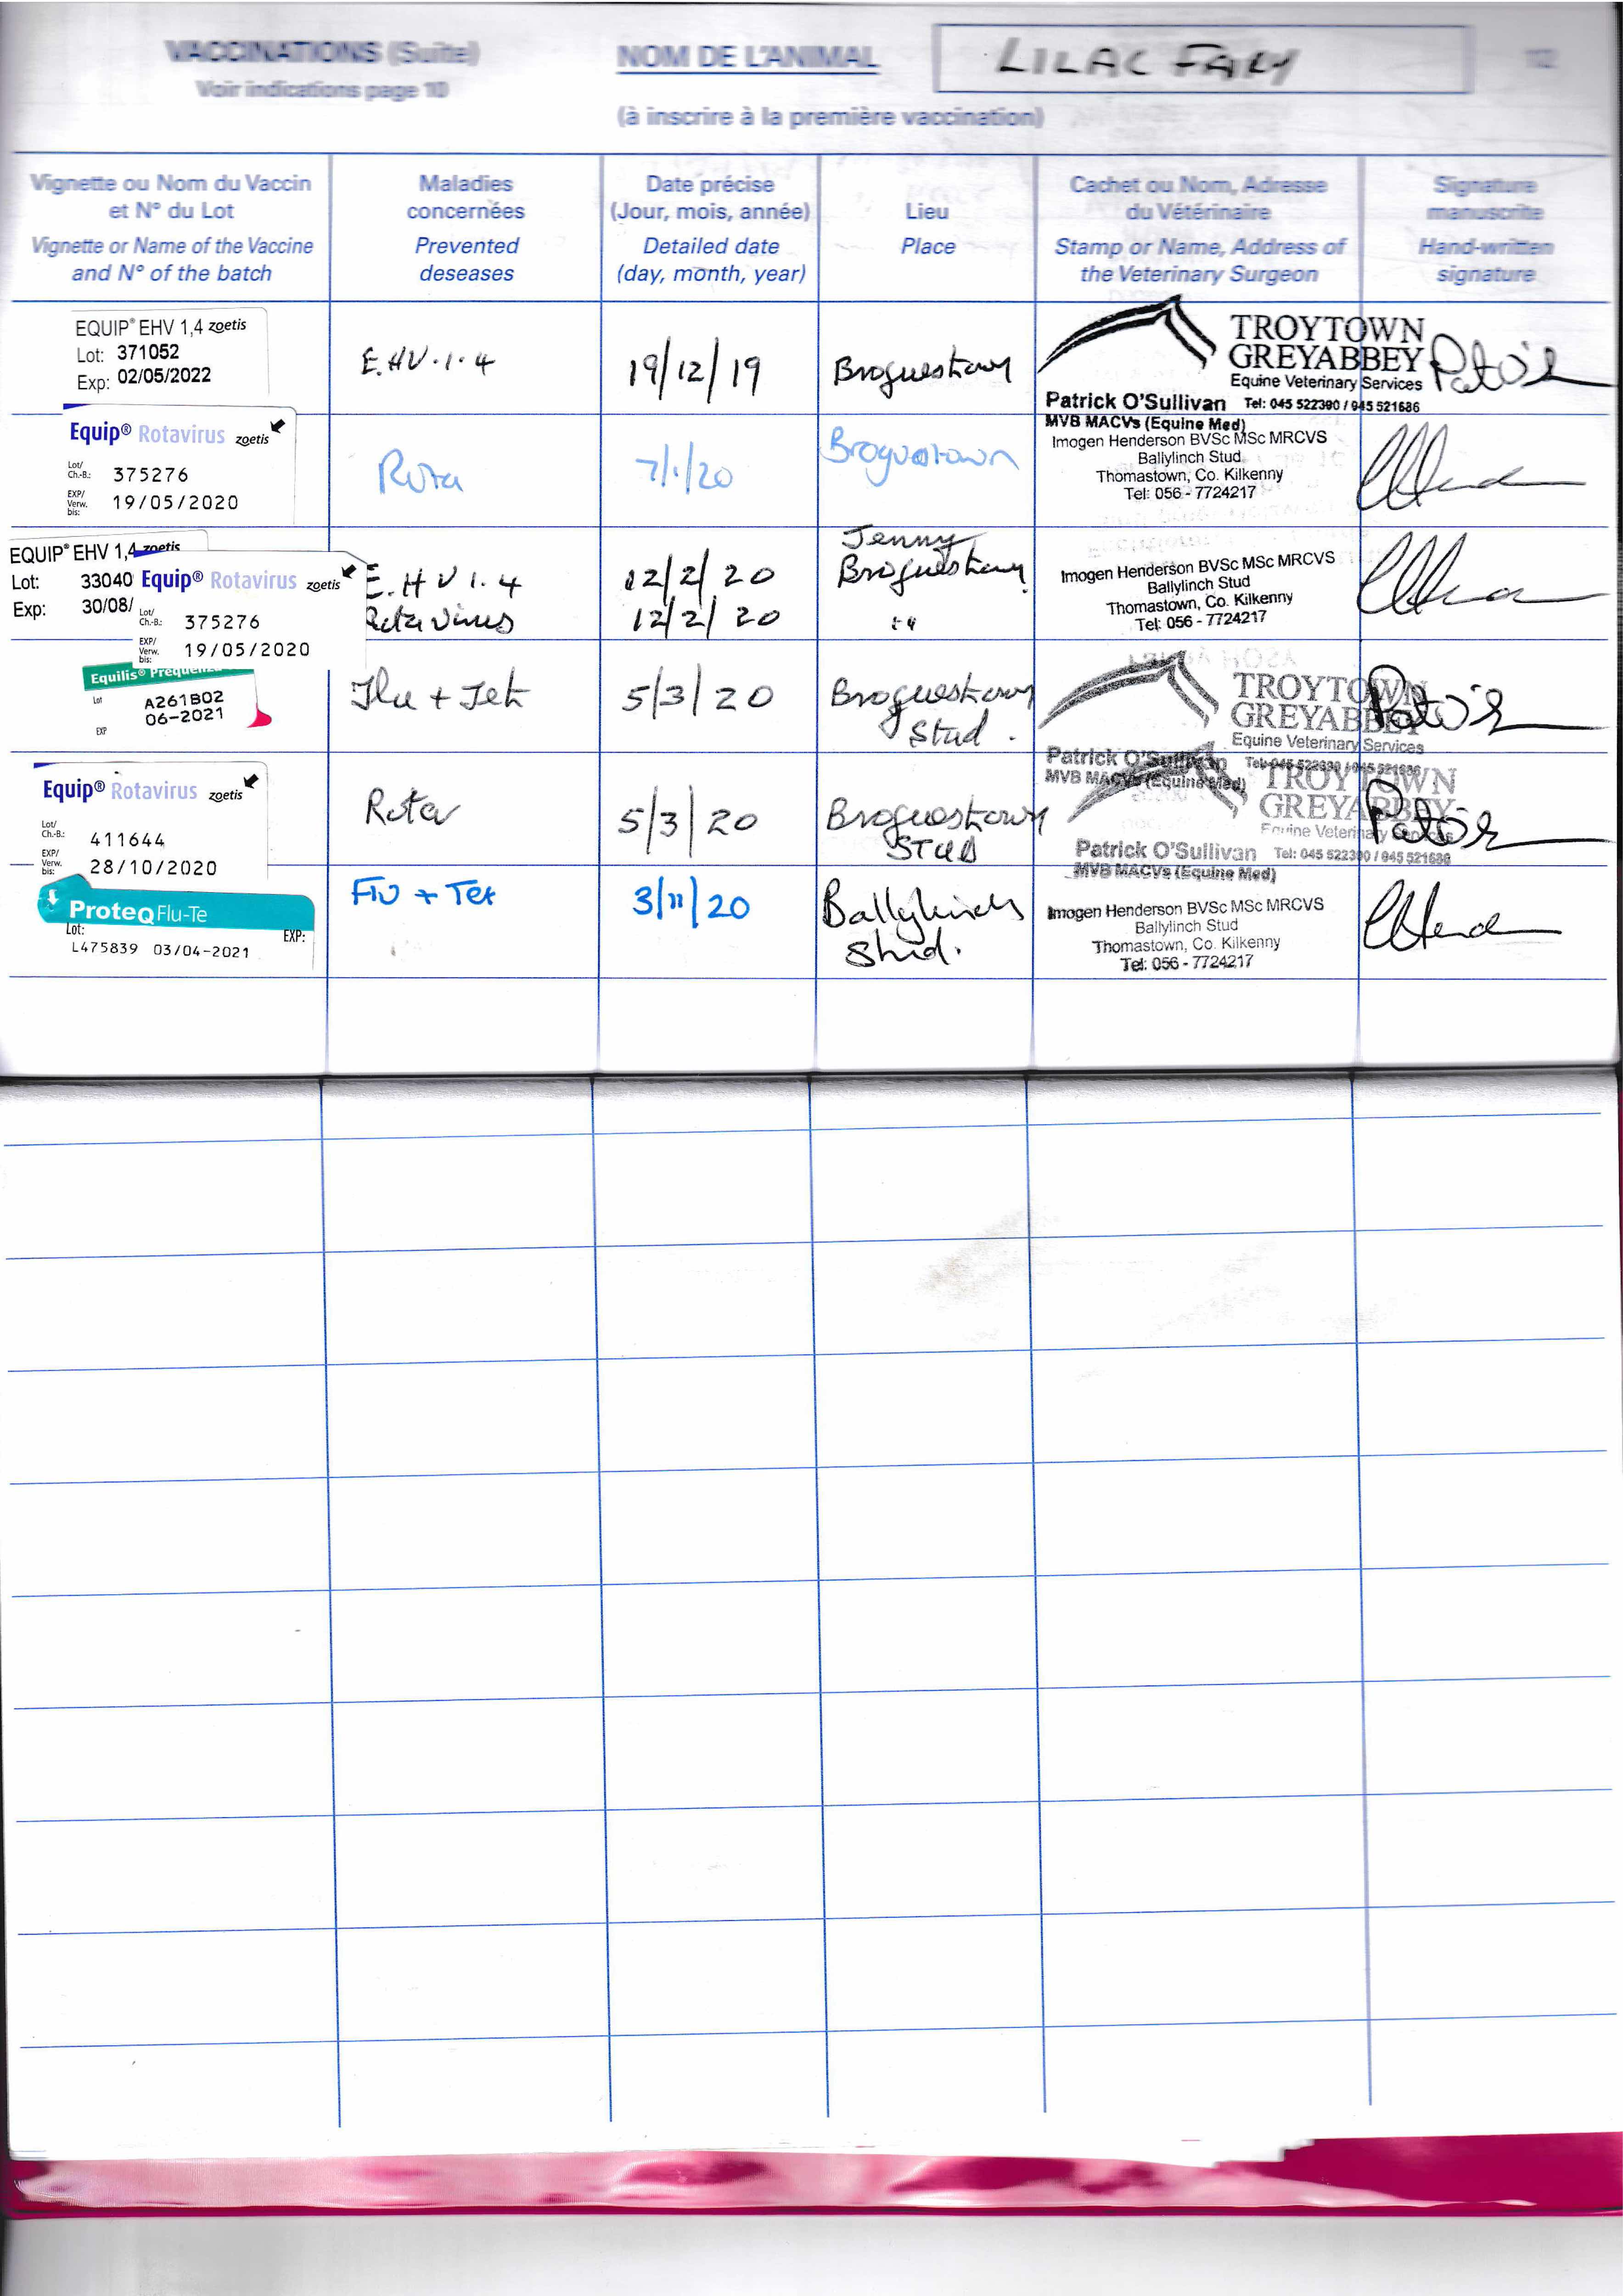 VACCINATIONS (Suite)
Voir indications page 10
NOM DE L'ANIMAL
LILAC FAIRY
12
(à inscrire à la première vaccination)
Vignette ou Nom du Vaccin
et N° du Lot
Vignette or Name of the Vaccine
and N° of the batch
Maladies
concernées
Prevented
deseases
Date précise
(Jour, mois, année)
Detailed date
(day, month, year)
Lieu
Place
Cachet ou Nom, Adresse
du Vétérinaire
Stamp or Name, Address of
the Veterinary Surgeon
Signature
manuscrite
Hand-written
signature
EQUIP® EHV 1,4 zoetis
Lot: 371052
Exp: 02/05/2022
E.HV.1.4
19/12/19
Broguestown
TROYTOWN
GREYABBEY
Equine Veterinary Services
Patrick O'Sullivan Tel: 045 522390 / 045 521686
MVB MACVs (Equine Med)
Equip® Rotavirus zoetis
Lot/
Ch.-B.: 375276
EXP/
Verw.
bis: 19/05/2020
Rota
7/1/20
Broguestown
Imogen Henderson BVSc MSc MRCVS
Ballylinch Stud
Thomastown, Co. Kilkenny
Tel: 056 - 7724217
EQUIP® EHV 1,4 zoetis
Lot: 33040
Exp: 30/08/
Equip® Rotavirus zoetis
Lot/
Ch.-B.: 375276
EXP/
Verw.
bis: 19/05/2020
E.HV 1.4
Rotavirus
12/2/20
12/2/20
Jenny
Broguestown
Imogen Henderson BVSc MSc MRCVS
Ballylinch Stud
Thomastown, Co. Kilkenny
Tel: 056 - 7724217
Equilis® Prequenza
Lot A261B02
EXP 06-2021
Flu + Tet
5/3/20
Broguestown
Stud.
TROYTOWN
GREYABBEY
Equine Veterinary Services
Patrick O'Sullivan Tel: 045 522390 / 045 521686
MVB MACVs (Equine Med)
Equip® Rotavirus zoetis
Lot/
Ch.-B.: 411644
EXP/
Verw.
bis: 28/10/2020
Rota
5/3/20
Broguestown
STUD
TROYTOWN
GREYABBEY
Equine Veterinary Services
Patrick O'Sullivan Tel: 045 522390 / 045 521686
MVB MACVs (Equine Med)
ProteqFlu-Te
Lot: EXP:
L475839 03/04-2021
Flu + Tet
3/11/20
Ballylinch
Stud.
Imogen Henderson BVSc MSc MRCVS
Ballylinch Stud
Thomastown, Co. Kilkenny
Tel: 056 - 7724217